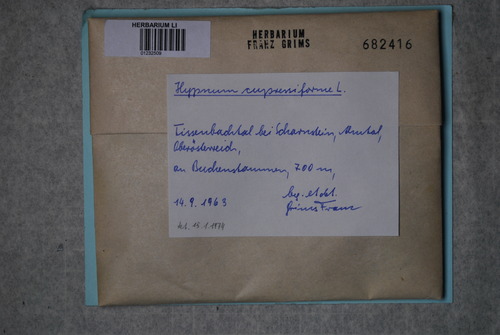 HERBARIUM LI
01232509
HERBARIUM
FRANZ GRIMS
682416
Hypnum cupressiforme L.
Tissenbachtal bei Scharnstein, Almtal,
Oberösterreich,
an Buchenstämmen, 700 m,
14.9.1963 leg. et det.
Grims Franz
16.1.1974